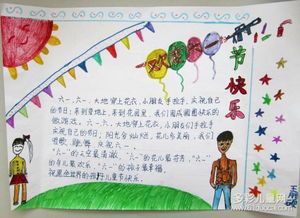 欢庆六一
节快乐
六一,六一,大地穿上花衣,小朋友手拉手,庆祝自己
的节日;来到草地上,来到花园里,我们围成圆圈快乐的
做游戏。六一,六一,大地穿上花衣,小朋友们手拉手
庆祝自己的节日;阳光分外灿烂,花儿多美丽,我们
唱歌、跳舞 庆祝六一。
"六一"的天空最清澈,"六一"的花儿最芬芳,"六一"
的音乐最欢畅,"六一"的孩子最幸福。
祝愿全世界的孩子儿童节快乐。
多彩儿童网